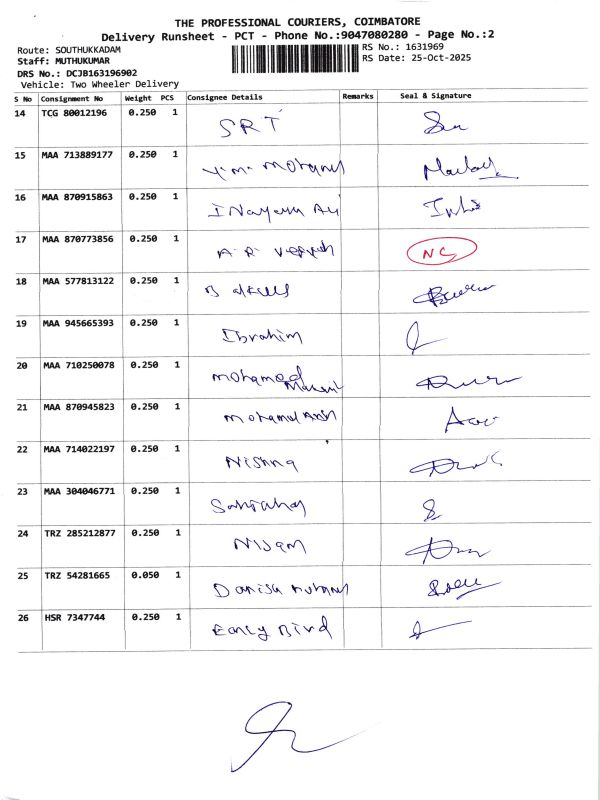 THE PROFESSIONAL COURIERS, COIMBATORE
Delivery Runsheet - PCT - Phone No.:9047080280 - Page No.:2
Route: SOUTHUKKADAM RS No.: 1631969
Staff: MUTHUKUMAR RS Date: 25-Oct-2025
DRS No.: DCJB163196902
Vehicle: Two Wheeler Delivery
S No Consignment No Weight PCS Consignee Details Remarks Seal & Signature
14 TCG 80012196 0.250 1 SRT
15 MAA 713889177 0.250 1
16 MAA 870915863 0.250 1
17 MAA 870773856 0.250 1 A.R. NC
18 MAA 577813122 0.250 1
19 MAA 945665393 0.250 1 Ibrahim
20 MAA 710250078 0.250 1 Mohamed
21 MAA 870945823 0.250 1 Mohamed
22 MAA 714022197 0.250 1 Nishna
23 MAA 304046771 0.250 1
24 TRZ 285212877 0.250 1 Nisam
25 TRZ 54281665 0.050 1 Danish
26 HSR 7347744 0.250 1 Early Bird